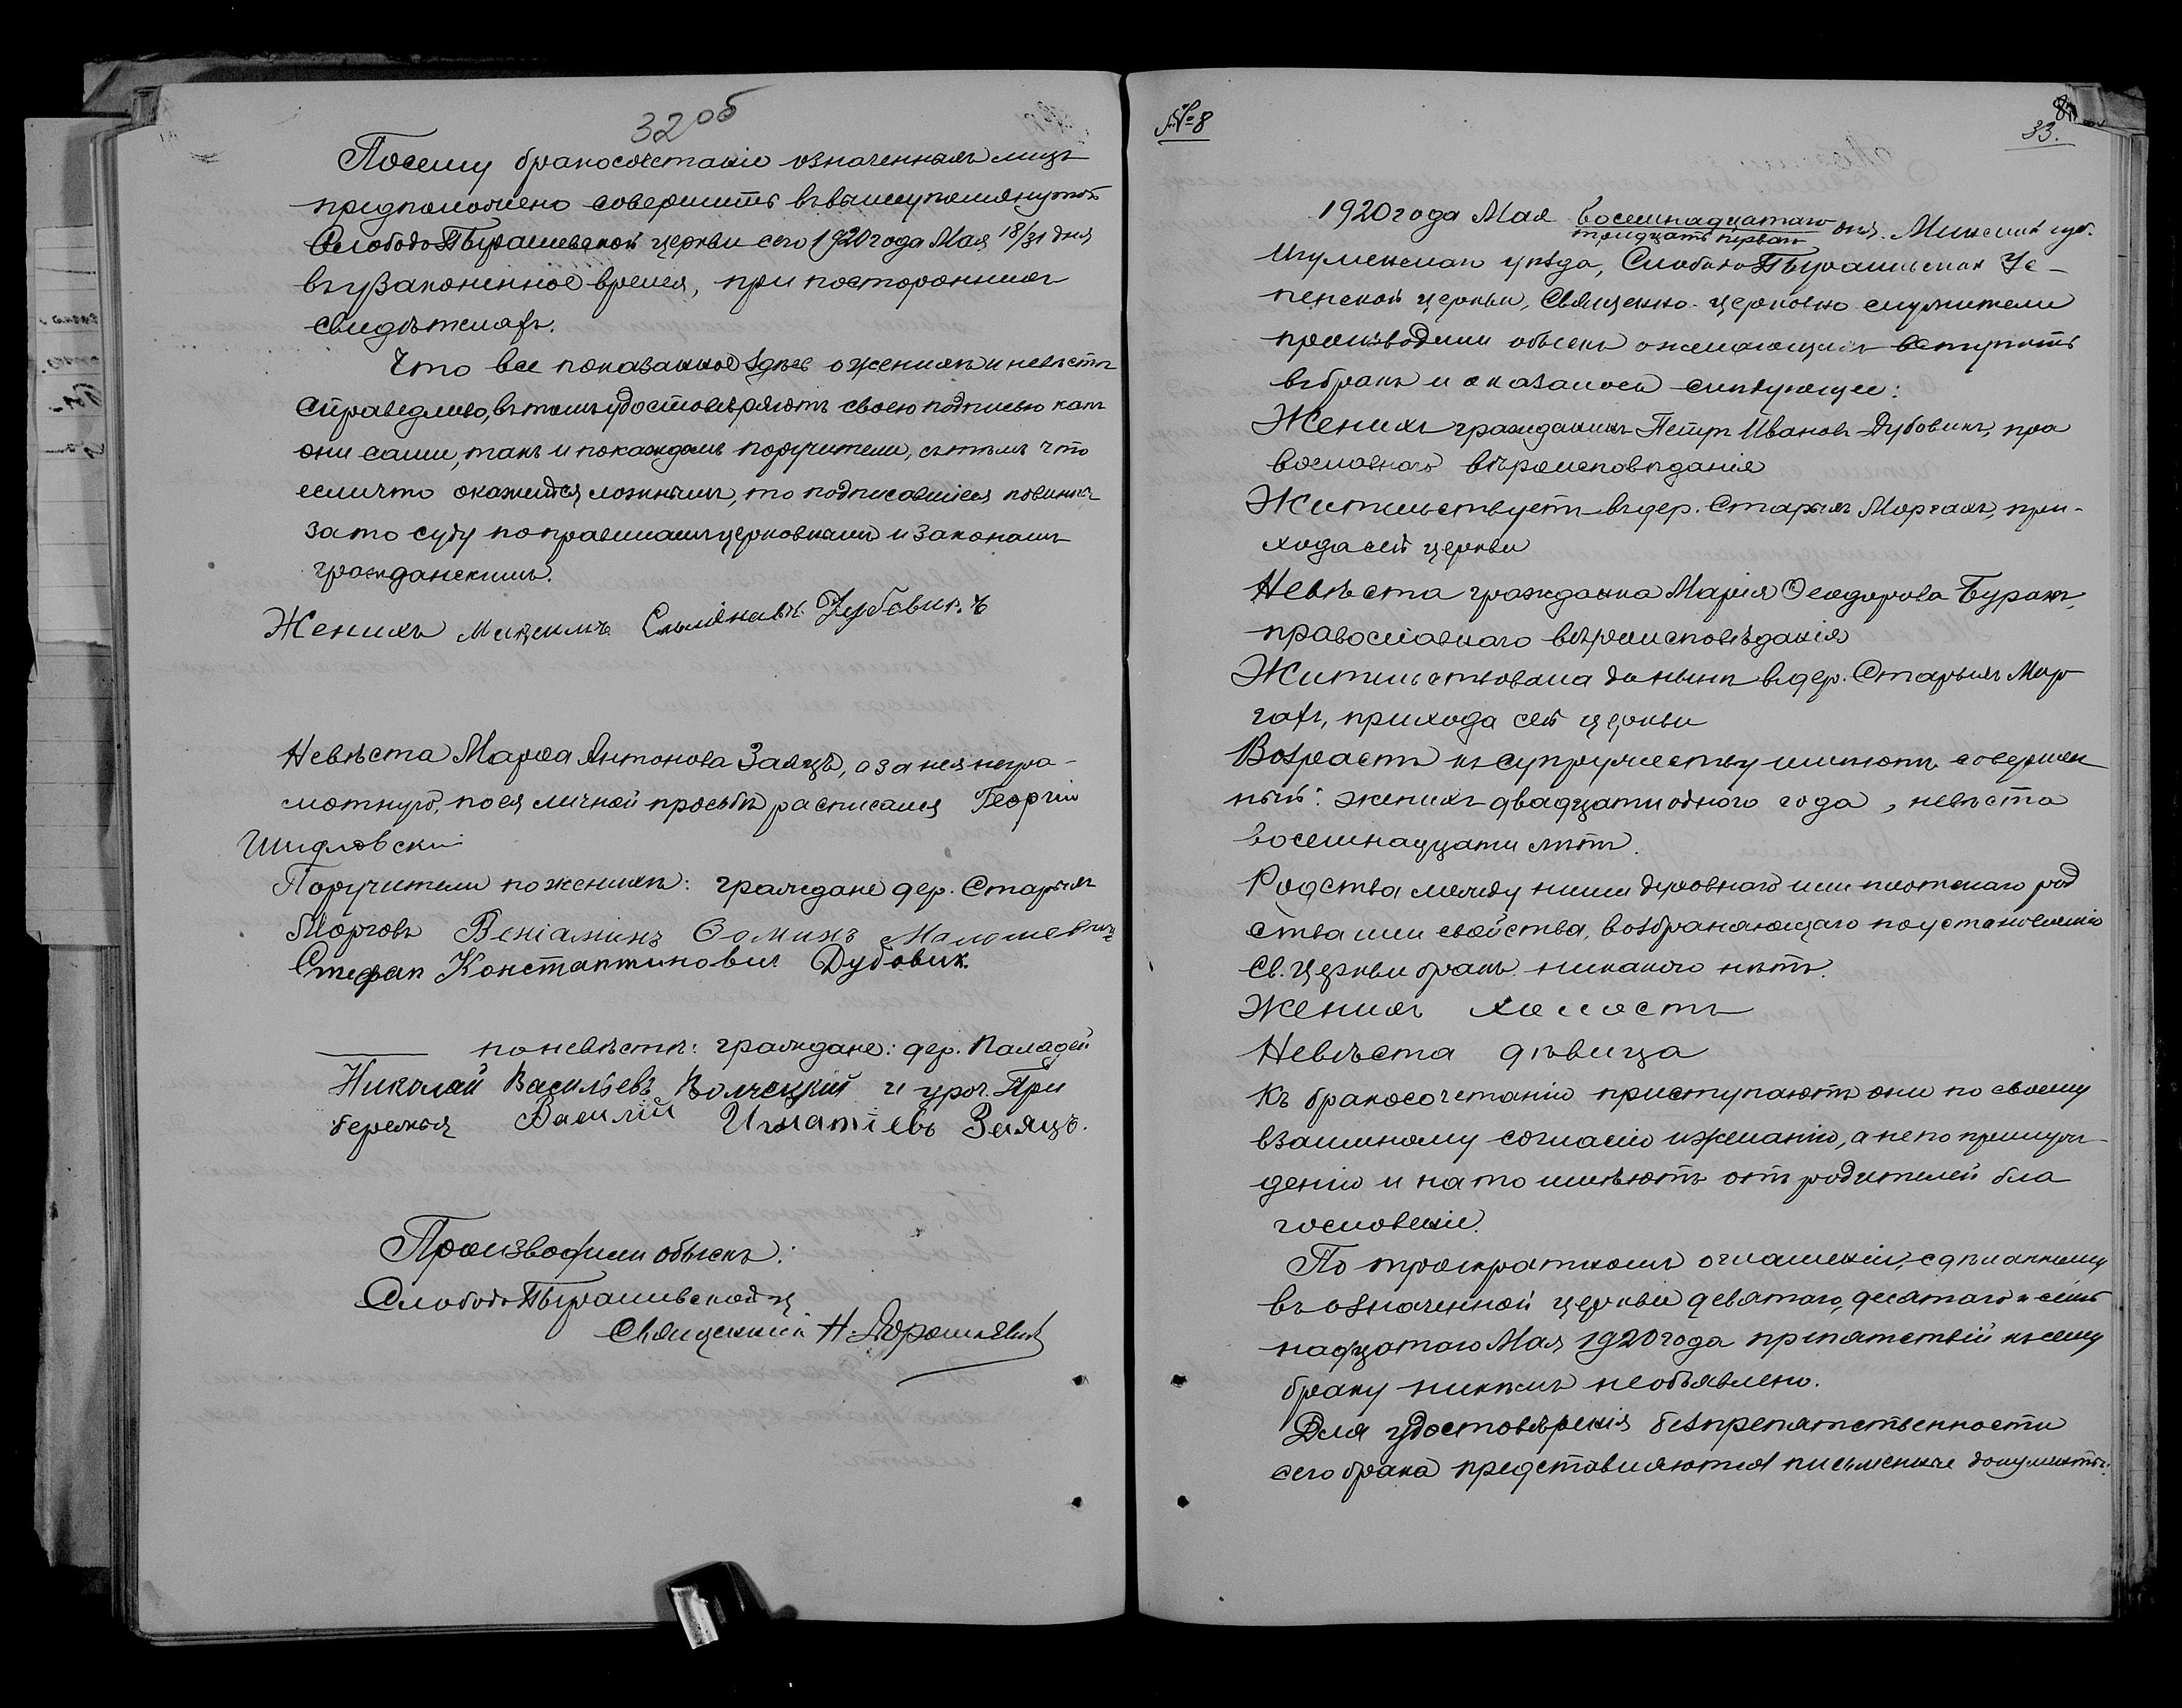 32 об
Посему бракосочетаніе означенныхъ лицъ
предположено совершить въ вышеупомянутой
Слободо-Пырашевской церкви сего 1920 года Мая 18/31 дня
въ узаконенное время, при постороннихъ
свидѣтеляхъ.
Что все показанное здѣсь о женихѣ и невѣстѣ
справедливо, въ томъ удостовѣряютъ своею подписью какъ
они сами, такъ и по каждомъ поручители, съ тѣмъ что
если что окажется ложнымъ, то подписавшіеся повинны
за то суду по правиламъ церковнымъ и законамъ
гражданскимъ.
Женихъ Дубовикъ
Невѣста Марѳа Антонова Заяцъ, а за нея негра-
мотную, по ея личной просьбѣ расписался Георгій
Шидловскій
Поручители по женихѣ: граждане дер. Старыхъ
Морговъ Веніаминъ Ѳоминъ
Стефан Константинович Дубовик.
по невѣстѣ: граждане: дер.
Николай Васильевъ и уроч. При
бережья Василій Игнатіевъ Заяцъ.
Производили обыскъ:
Слободо-Пырашевской ц
Священникъ Н.
№ 8
33.
1920 года Мая восемнадцатаго
тридцать перваго дня. Минской губ.
Игуменскаго уѣзда, Слободо-Пырашевской Ус-
пенской церкви, священно-церковно служители
производили обыскъ о желающихъ вступить
въ бракъ и оказалось слѣдующее:
Женихъ гражданинъ Петръ Ивановъ Дубовикъ, пра
вославнаго вѣроисповѣданія
Жительствуетъ въ дер. Старыхъ Моргахъ, при-
хода сей церкви
Невѣста гражданка Марія Ѳеодорова Буракъ,
православнаго вѣроисповѣданія
Жительствовала донынѣ въ дер. Старыхъ Мор
гахъ, прихода сей церкви
Возрастъ къ супружеству имѣютъ совершен
ный: женихъ двадцати одного года, невѣста
восемнадцати лѣтъ.
Родства между ними духовнаго или плотскаго род
ства или свойства, возбраняющаго по установленію
Св. Церкви бракъ никакого нѣтъ.
Женихъ холостъ
Невѣста дѣвица
Къ бракосочетанію приступаютъ они по своему
взаимному согласію и желанію, а не по принуж-
денію и на то имѣютъ отъ родителей бла
гословеніе.
По троекратномъ оглашеніи, сдѣланному
въ означенной церкви девятаго, десятаго и семь
надцатаго Мая 1920 года препятствій къ сему
браку никѣмъ не объявлено.
Для удостовѣренія безпрепятственности
сего брака представляются письменные документы: